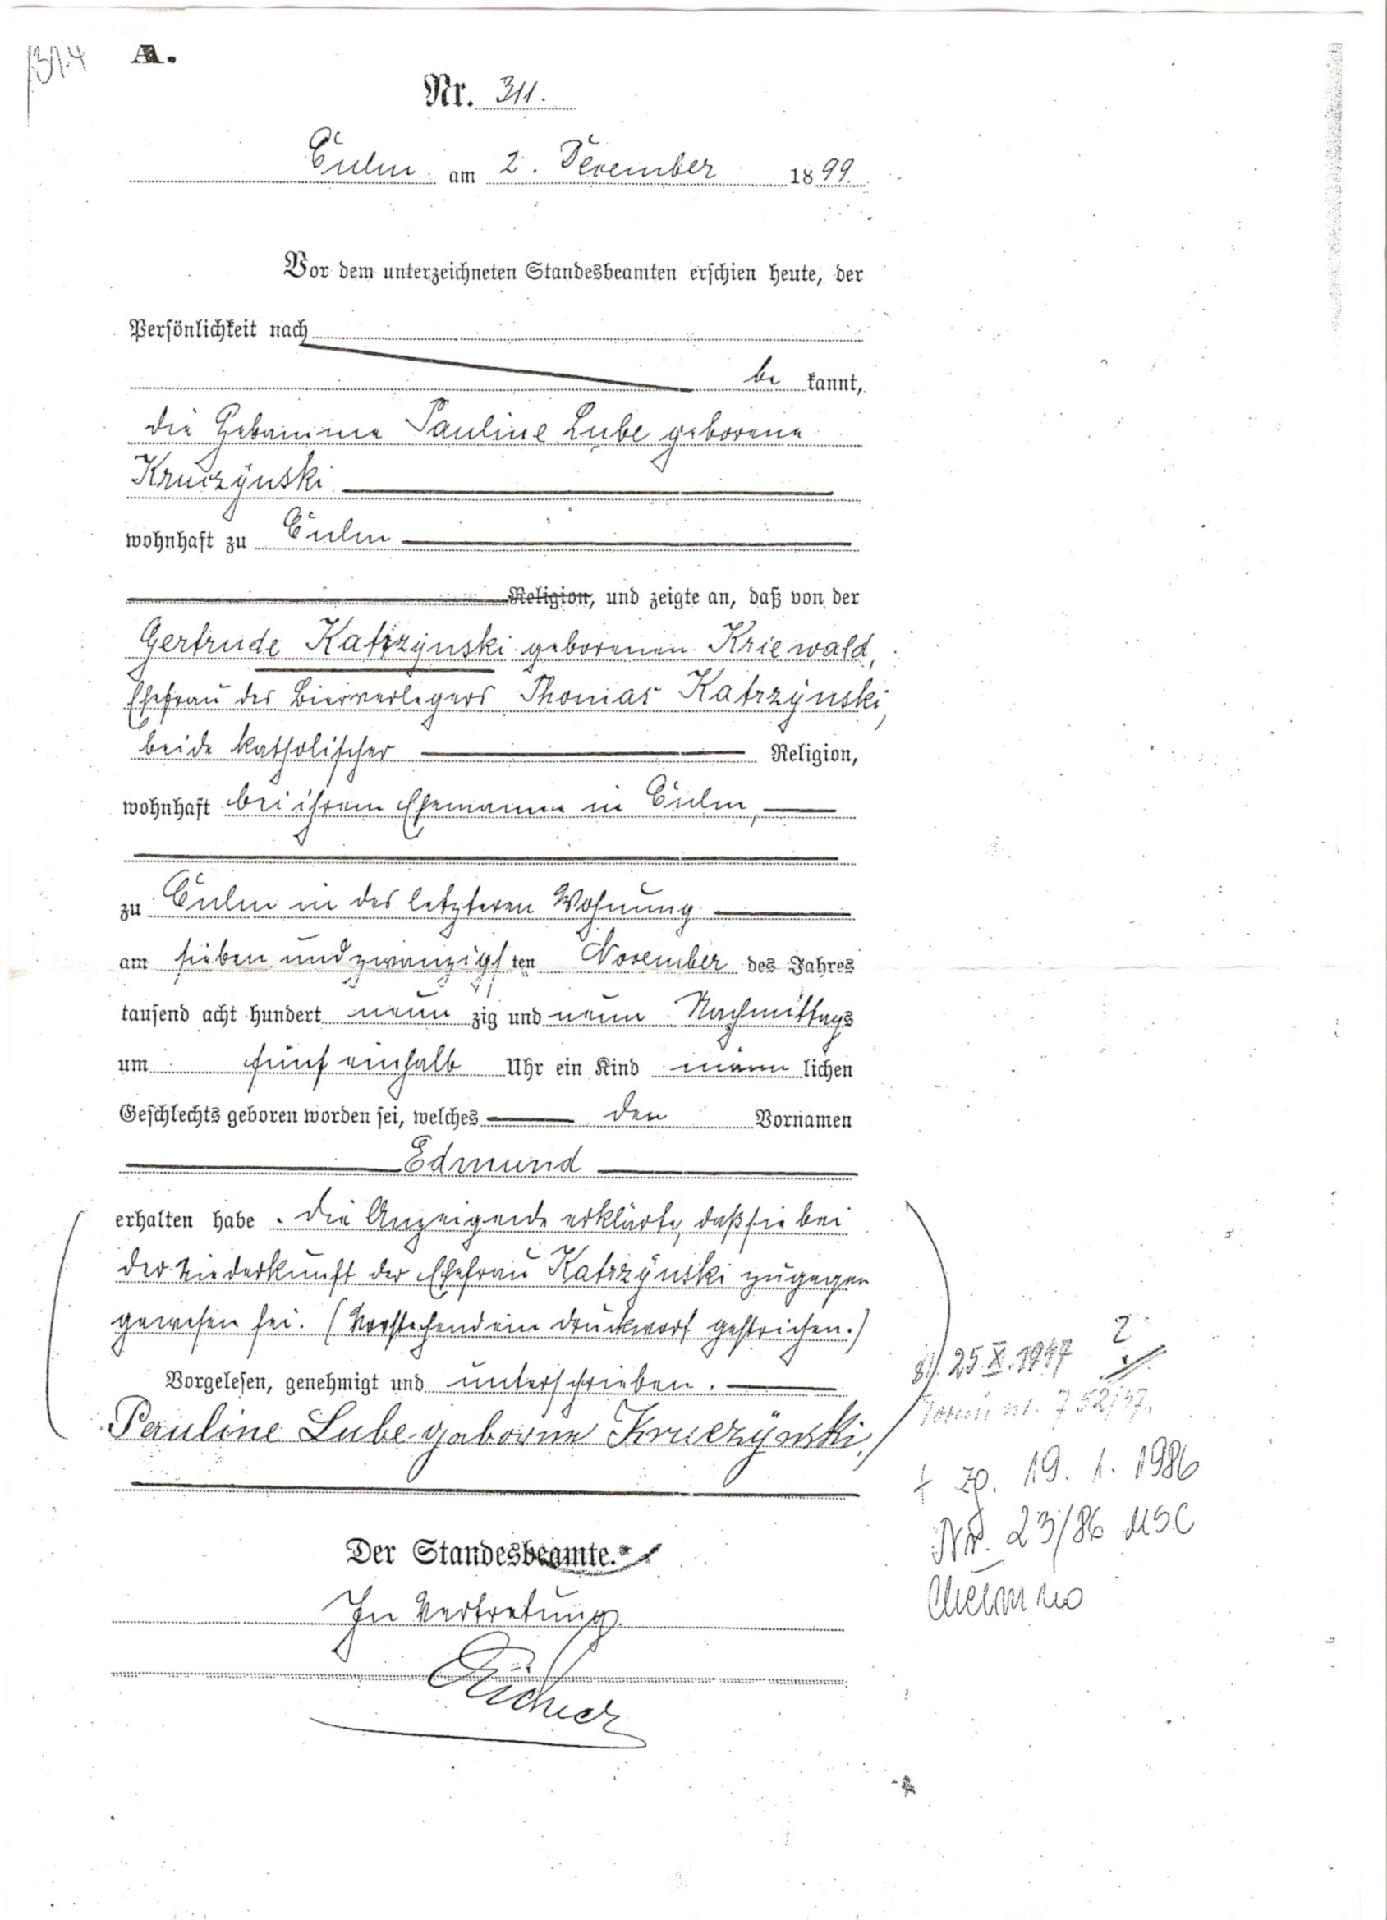 A.
Nr. 311.
Culm am 2. December 1899.
Vor dem unterzeichneten Standesbeamten erschien heute, der
Persönlichkeit nach
be kannt,
die Hebamme Pauline Lube geborene
Kruczynski
wohnhaft zu Culm
Religion, und zeigte an, daß von der
Gertrude Katrzynski geborenen Kriewald,
Ehefrau des Bierverlegers Thomas Katrzynski,
beide katholischer Religion,
wohnhaft bei ihrem Ehemanne in Culm,
zu Culm in des letzteren Wohnung
am sieben und zwanzigsten November des Jahres
tausend acht hundert neun zig und neun Nachmittags
um fünf einhalb Uhr ein Kind männ lichen
Geschlechts geboren worden sei, welches den Vornamen
Edmund
erhalten habe. Die Anzeigende erklärte, daß sie bei
der Niederkunft der Ehefrau Katrzynski zugegen
gewesen sei. (Vorstehend ein Druckwort gestrichen.)
Vorgelesen, genehmigt und unterschrieben.
Pauline Lube geborne Kruczynski
Der Standesbeamte.
In Vertretung
25 X. 1937 2
nr. 752/37.
+ zg. 19. 1. 1986
Nr. 23/86 USC
Chełmno